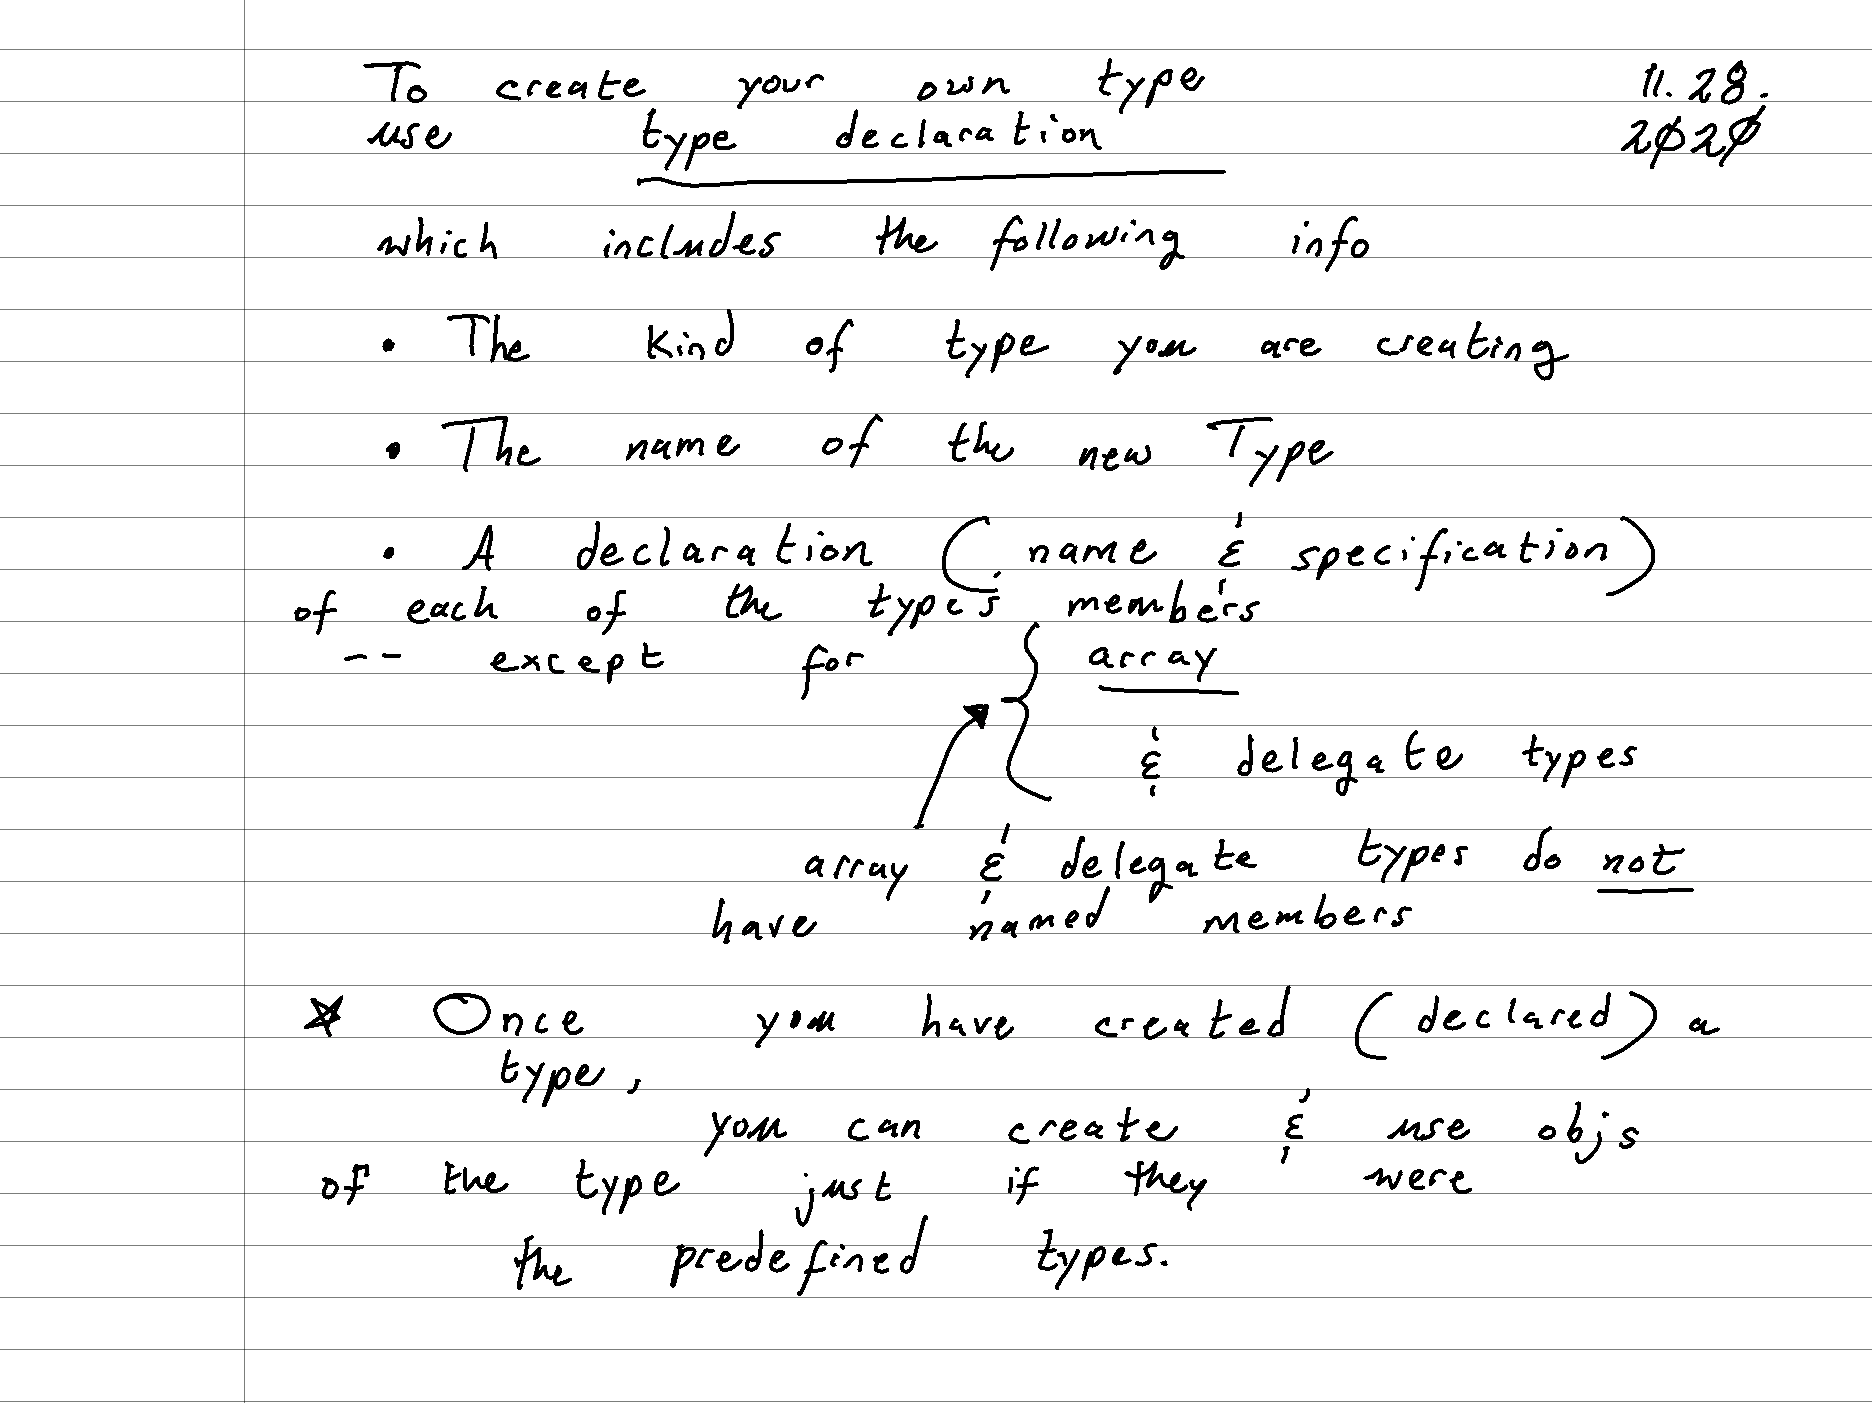 To create your own type 11.28.
use type declaration 2020
which includes the following info
• The kind of type you are creating
• The name of the new Type
• A declaration (name & specification)
of each of the type's members
-- except for { array
& delegate types
array & delegate types do not
have named members
☆ Once you have created (declared) a
type,
you can create & use objs
of the type just if they were
the predefined types.